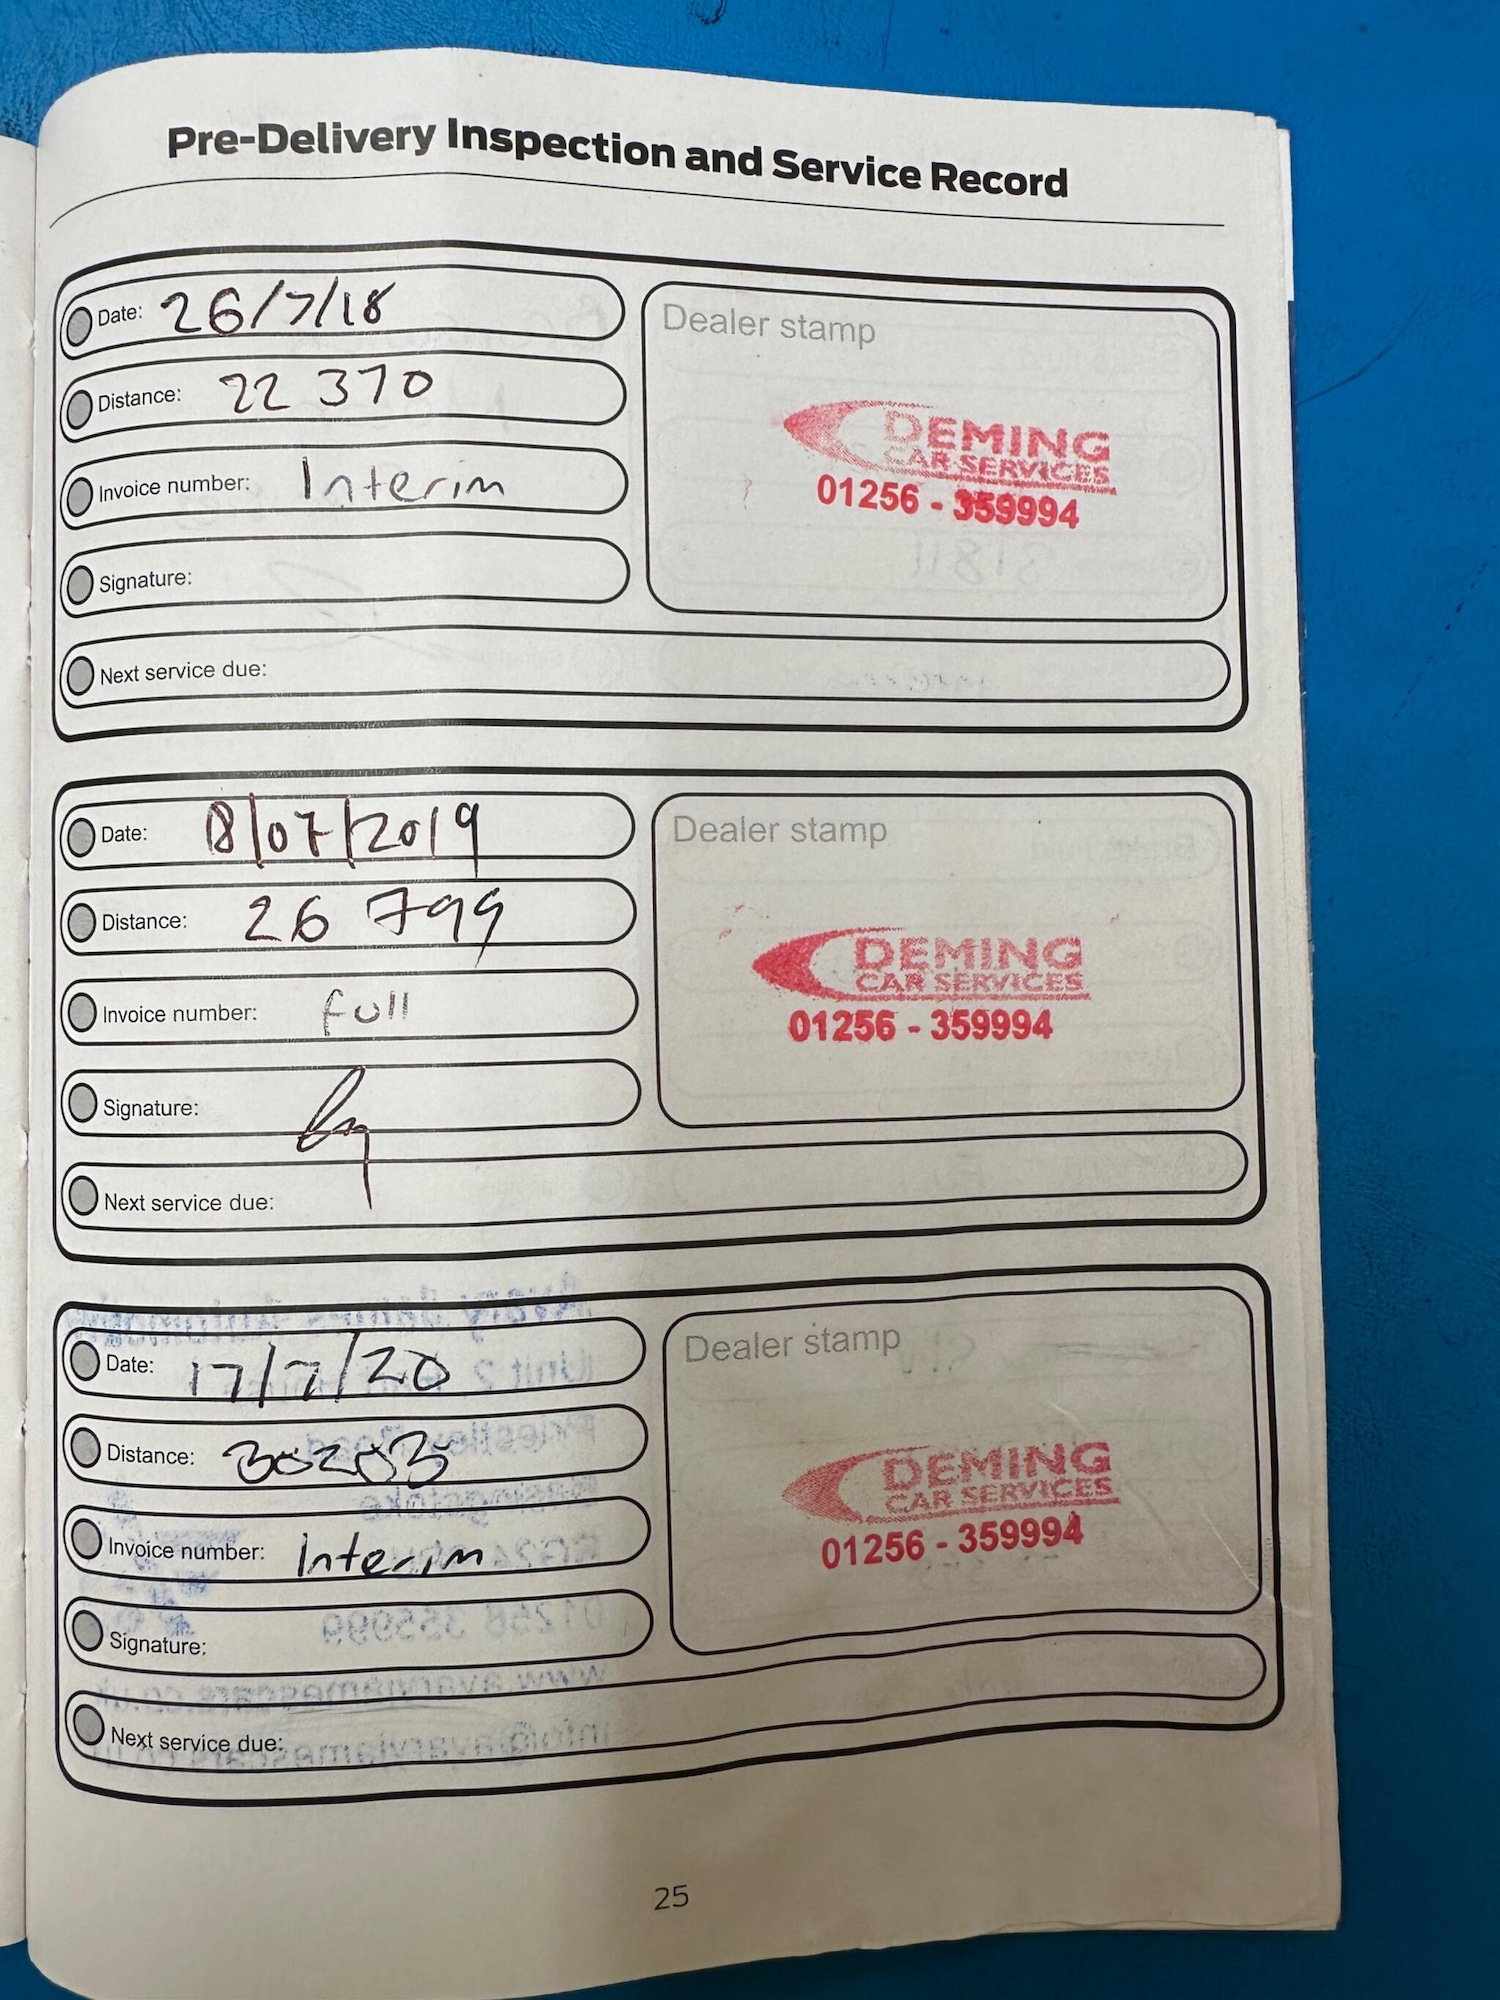 Pre-Delivery Inspection and Service Record
Date: 26/7/18
Distance: 22 370
Invoice number: Interim
Signature:
Next service due:
Dealer stamp
DEMING
CAR SERVICES
01256 - 359994
Date: 18/07/2019
Distance: 26 799
Invoice number: full
Signature:
Next service due:
Dealer stamp
DEMING
CAR SERVICES
01256 - 359994
Date: 17/7/20
Distance: 30203
Invoice number: Interim
Signature:
Next service due:
Dealer stamp
DEMING
CAR SERVICES
01256 - 359994
25